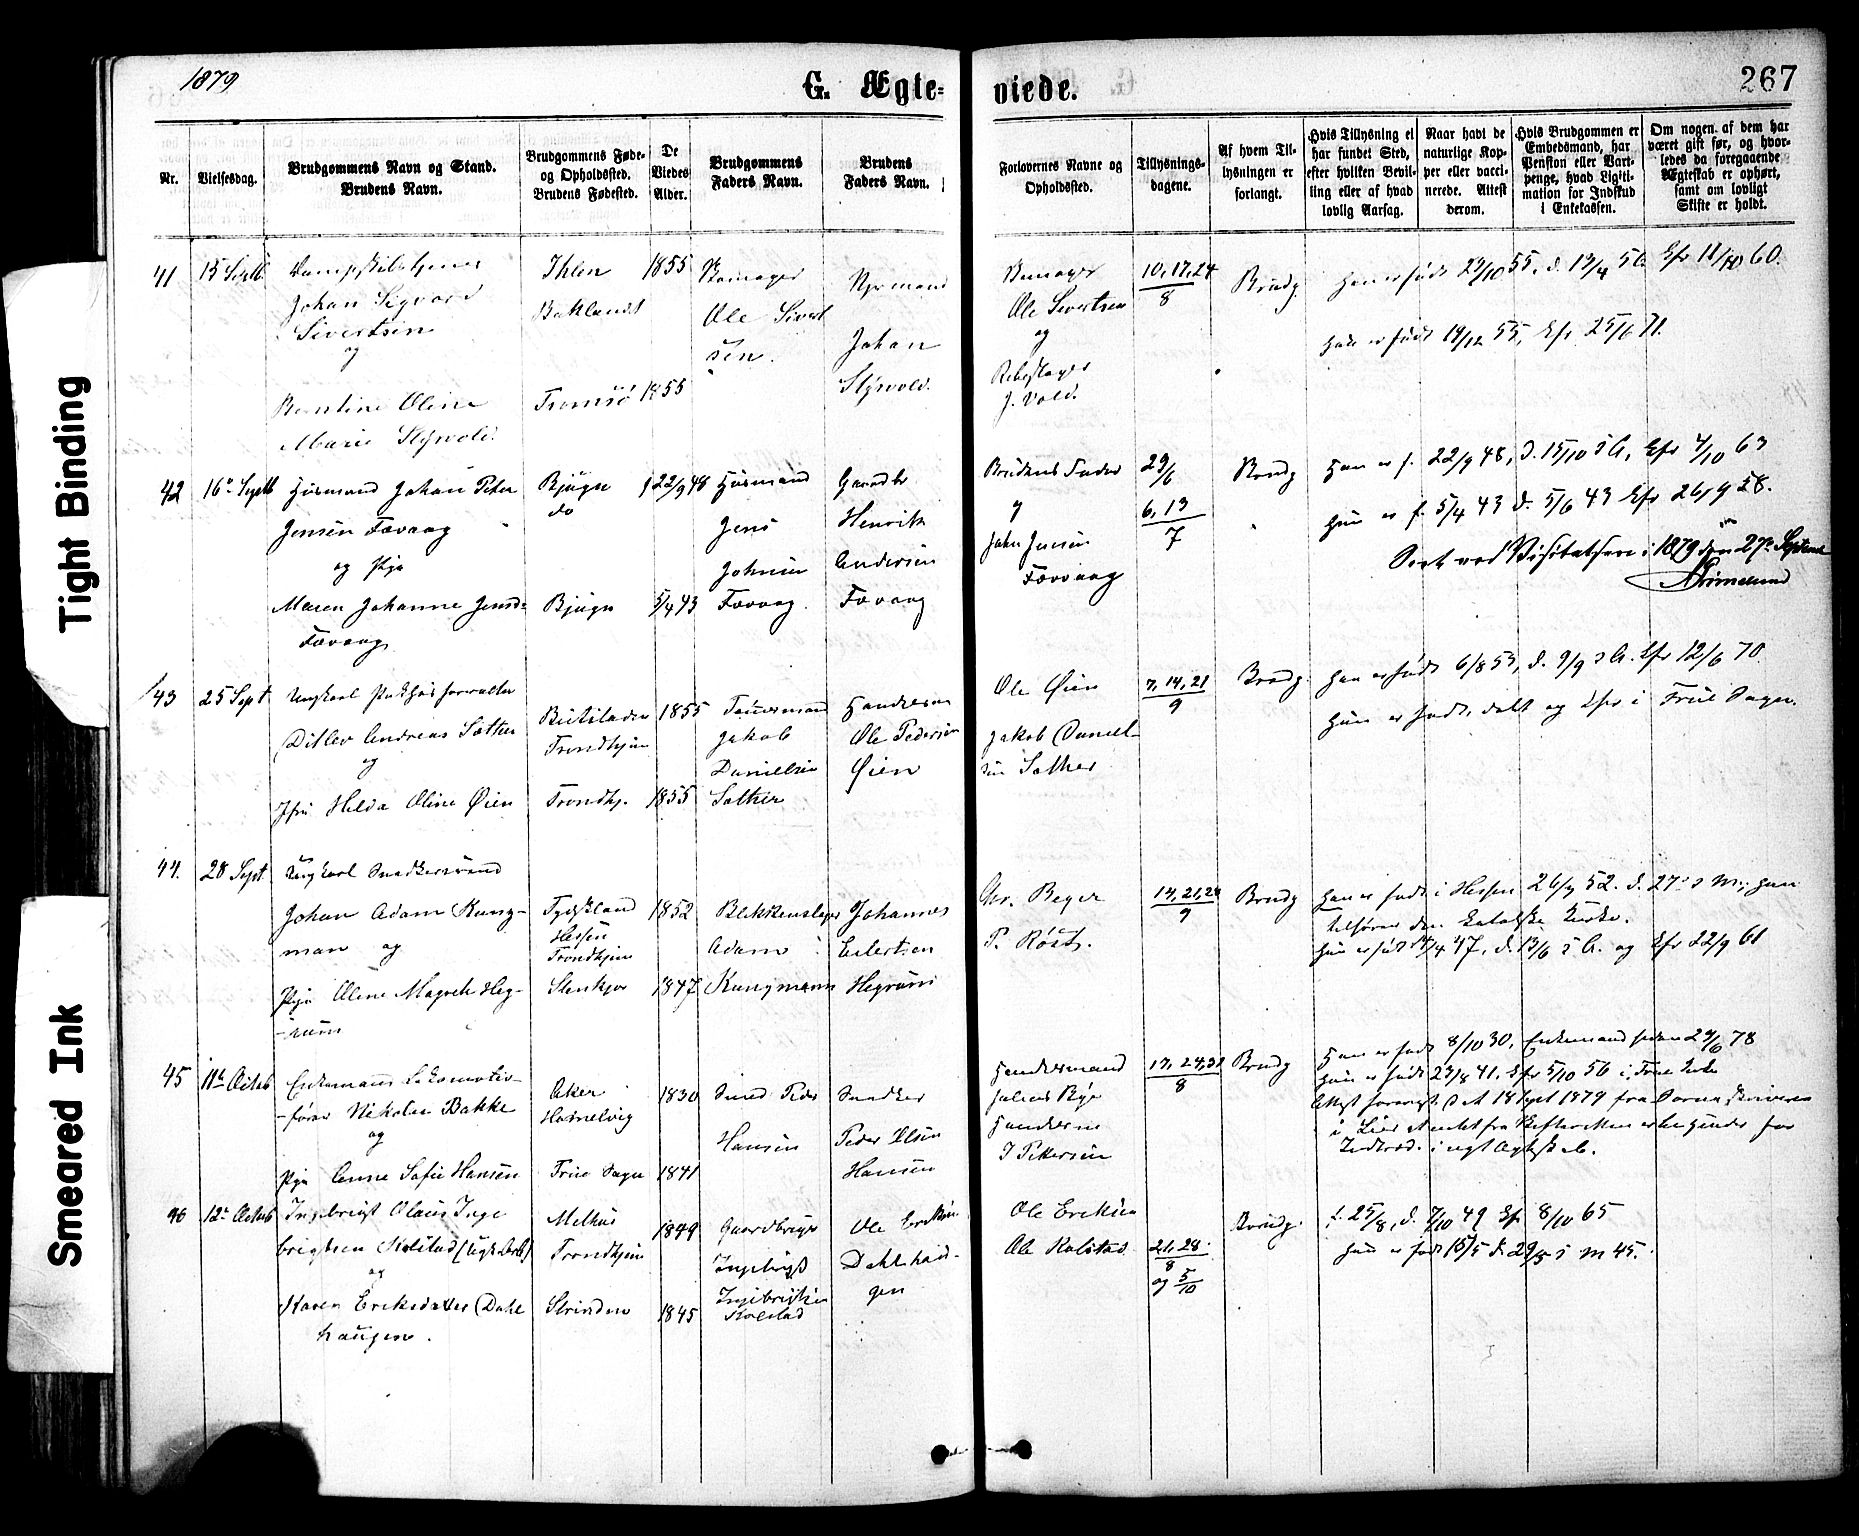 1879
G. Ægte=
viede.
267
Tight Binding
Smeared Ink
Nr.
Vielsesdag.
Brudgommens Navn og Stand.
Brudens Navn.
Brudgommens Føde-
og Opholdssted.
Brudens Fødested.
De
Viedes
Alder.
Brudgommens
Faders Navn.
Brudens
Faders Navn.
Forlovernes Navne og
Opholdssted.
Tillysnings-
dagene.
Af hvem Til-
lysningen er
forlangt.
Hvis Tillysning ei
har fundet Sted,
efter hvilken Bevil-
ling eller af hvad
lovlig Aarsag.
Naar havt de
naturlige Kop-
per eller vacci-
nerede. Attest
derom.
Hvis Brudgommen er
Embedsmand, har
Pension eller Vart-
penge, hvad Legiti-
mation for Indskud
i Enkekassen.
Om nogen af dem har
været gift før, og hvor-
ledes da foregaaende
Ægteskab er ophørt,
samt om lovligt
Skifte er holdt.
41
15 Septb
Johan Sigvard
Sivertsen
og
Berntine Oline
Marie Styvold.
Ihlen
Baklandet
Tromsö
1855
1855
Ole Sivert
sen.
Johan
Styvold.
Ole Sivertsen
og
Rebslager
J. Vold.
10, 17, 24
8
Brudg.
Han er født 23/10 55, d. 13/4 56 Cfr 11/10 60.
Hun er født 14/12 55, Cfr 25/6 71.
42
16de Septb
Husmand Johan Peter
Jensen Fævaag
og Pige
Maren Johanne Jensd=
Fævaag
Bjugn
do
Bjugn
f 22/9 48
5/4 43
Husmand
Jens
Johnsen
Fævaag.
Gaardbr
Henrik
Andersen
Fævaag
Brudens Fader
og
John Jensen
Fævaag
29/6
6, 13
7
Brudg
Han er f. 22/9 48, d. 15/10 s A, Cfr 4/10 63
Hun er f. 5/4 43 d. 5/6 43 Cfr 26/9 58.
Seet ved Visitatsen i 1879 den 27de Septemb
Grimelund
43
25 Sept
Ungkarl Pakhusforvalter
Ditlev Andreas Sæther
og
Jfru Helda Oline Øien
Trondhjem
Trondhj.
1855
1855
Jakob
Danielsen
Sæther
Ole Pedersen
Øien
Ole Øien
Jakob Daniel-
sen Sæther
7, 14, 21
9
Brudg.
Han er født 6/8 53, d. 9/9 s A. Cfr 12/6 70.
Hun er født, døbt og Cfr i Frue Sogn.
44.
28 Sept.
Ungkarl Snedkersvend
Johan Adam Kung-
man og
Pige Oline Magrete Heg-
-rum
Tydskland
Hessen
Trondhjem
Stenkjær
1852
1847
Blikkenslager
Adam
Kungmann
Johannes
Eilertsen
Hegrum
Chr. Beyer
P. Röst.
14, 21, 28
9
Brudg
Han er født i Hessen 26/9 52. d. 27de s M; han
tilhører den katolske Kirke.
Hun er født 14/4 47, d. 13/6 s A. og Cfr 22/9 61
45
11te Octob
Enkemand Lokomotiv-
-fører Nikolai Bakke
og
Pige Anne Sofie Hansen
Aker
Frue Sogn
1830
1841
Smed Peder
Hansen
Snedker
Peder Olsen
Hansen
Handelsmand
Julius Bye
J Petersen
17, 24, 31
8
Brudg
Han er født 8/10 30, Enkemand siden 29/6 78
Hun er født 23/8 41. Cfr 5/10 56 i Frue Kirke
46
12te Octob
Ingebrigt Olaus Inge
brigtsen Kolstad (Ugk. Arb)
og
Karen Eriksdatter Dahl
haugen.
Melhus
Trondhjem
Strinden
1849
1845
Gaardbruger
Ingebrigt
Ingebrigtsen
Kolstad
Ole Eriksen
Dahlhau-
gen
Ole Eriksen
Ole Kolstad.
21, 28
8
og 5/10
Brudg.
f. 25/8, d. 7/10 49 Cfr 8/10 65
Hun er født 15/5 d. 29/5 s M 45.